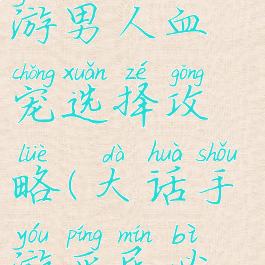 游男人血
chǒng xuǎn zé gōng
宠选择攻
lüè dà huà shǒu
略(大话手
yóu píng mín bì
游平民必